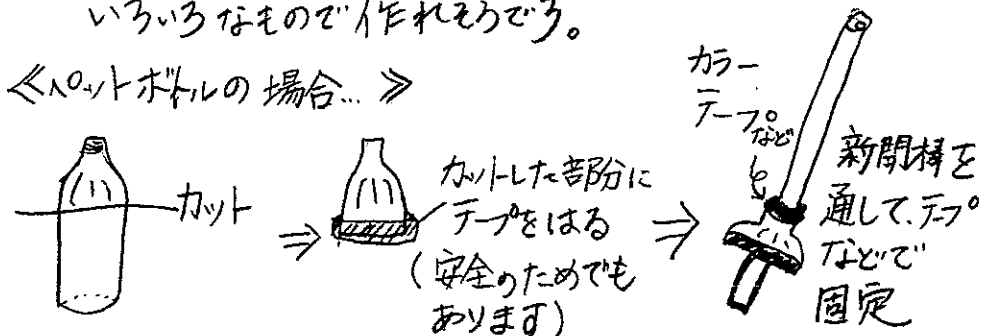 いろいろなもので作れそうです。
≪ペットボトルの場合…≫
カット
カットした部分に
テープをはる
(安全のためでも
あります)
カラー
テープ
など
新聞棒を
通して、テープ
などで
固定